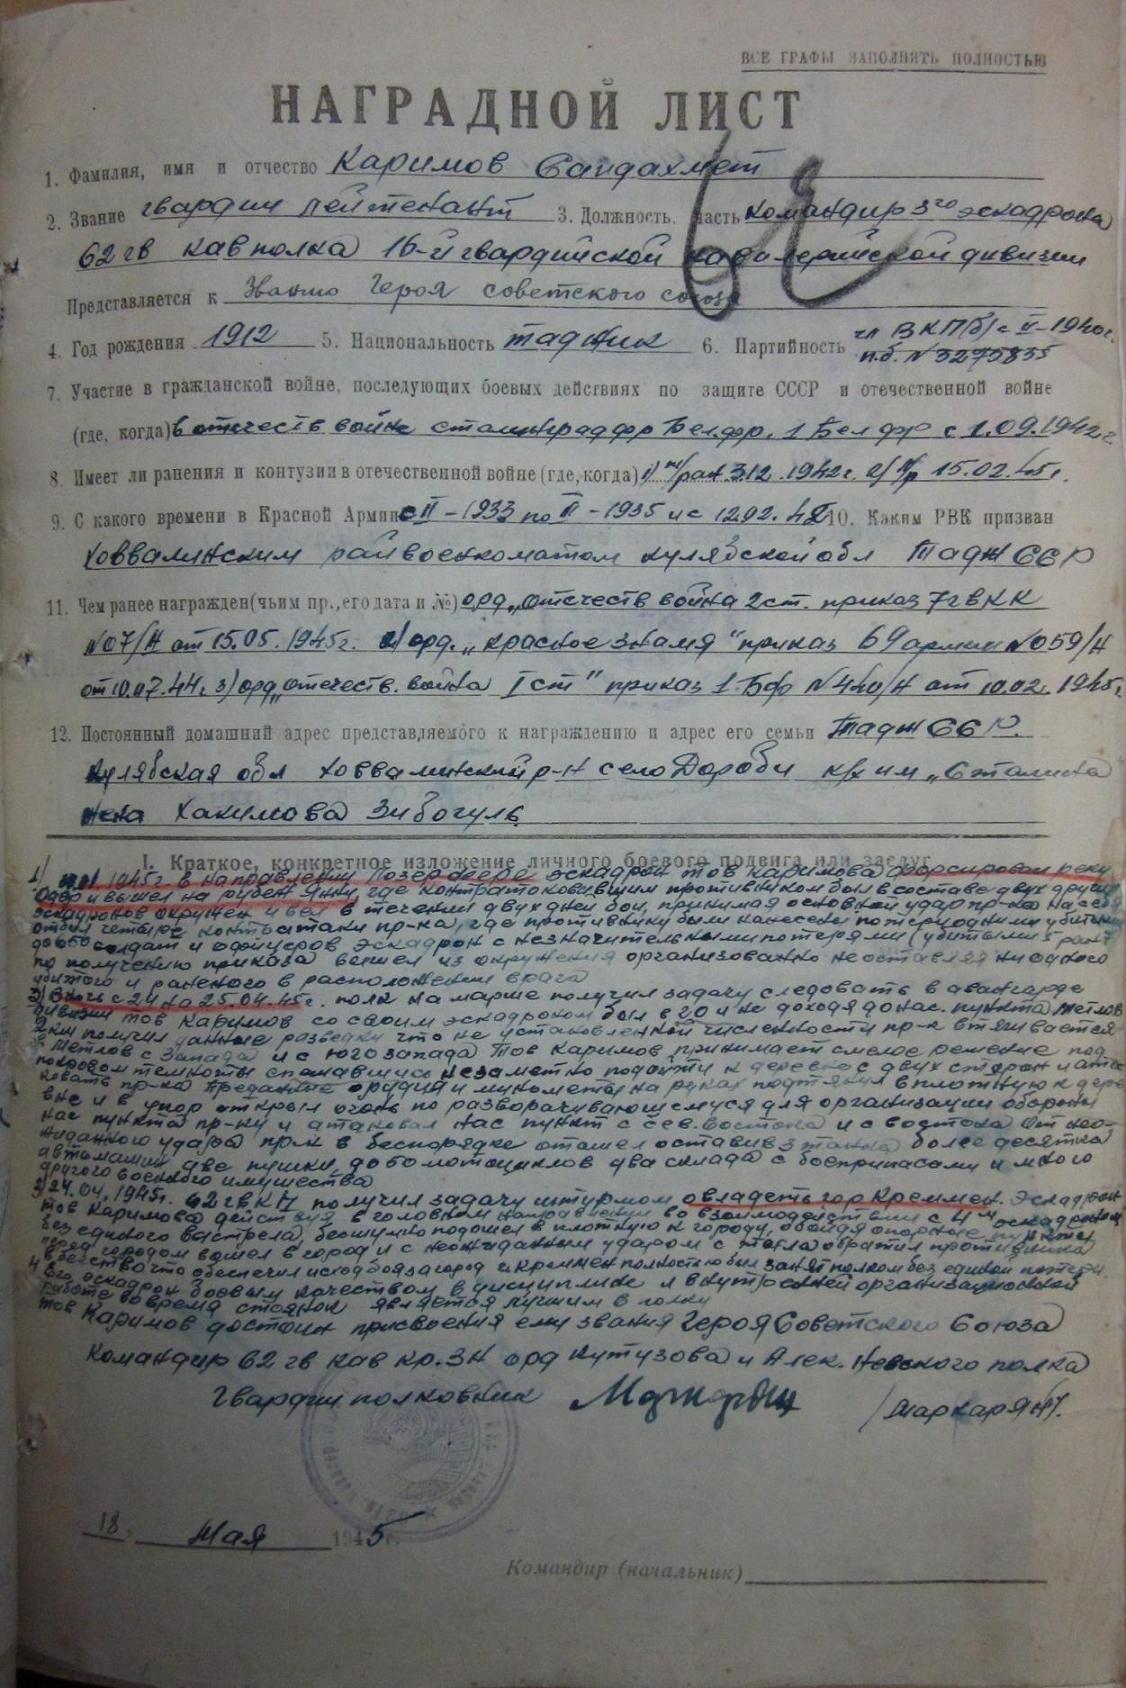 ВСЕ ГРАФЫ ЗАПОЛНЯТЬ ПОЛНОСТЬЮ
НАГРАДНОЙ ЛИСТ
1. Фамилия, имя и отчество Каримов Саидахмет
2. Звание гвардии лейтенант 3. Должность, часть командир 3го эскадрона
62 гв кавполка 16-й гвардейской кавалерийской дивизии
Представляется к Званию Героя советского союза
4. Год рождения 1912 5. Национальность таджик 6. Партийность чл ВКП(б) с II-1940г.
п.б. №3275835
7. Участие в гражданской войне, последующих боевых действиях по защите СССР и отечественной войне
(где, когда) в отечеств войне сталинград фр Бел.фр. 1 Бел фр с 1.09.1942г.
8. Имеет ли ранения и контузии в отечественной войне (где, когда) 1) т/ран 3.12.1942г. 2) л/р 15.02.45г.
9. С какого времени в Красной Армии с II-1933 по II-1935 и с 12.02.42 10. Каким РВК призван
Ховвалинским райвоенкоматом кулябской обл Тадж ССР
11. Чем ранее награжден (чьим пр., его дата и №) орд „отечеств война 2 ст. приказ 7 гв КК
№07/н от 15.05.1945г. 2) орд. „красное знамя" приказ 69 армии №059/н
от 10.07.44г. 3) орд „отечеств. война I ст" приказ 1 Бф №420/н от 10.02. 1945г.
12. Постоянный домашний адрес представляемого к награждению и адрес его семьи Тадж ССР.
Кулябская обл Ховвалинский р-н село Дороби к/х им „Сталина
жена Хакимова Зибогуль
I. Краткое, конкретное изложение личного боевого подвига или заслуг
1) 1945г. в направлении эскадрон тов Каримова форсировал реку
Одер и вышел на рубеж где контратаковавшим противником был в составе двух других
эскадронов окружен и вел в течении двух дней бой, принимая основной удар пр-ка на себя
отбил четыре контратаки пр-ка, где противнику были нанесены потери одними убитыми
до 60 солдат и офицеров эскадрон с незначительными потерями (убитыми 5 ран 7
по получению приказа вышел из окружения организованно не оставляя ни одного
убитого и раненого в расположении врага
2) В ночь с 24 на 25.04.45г. полк на марше получил задачу следовать в авангарде
дивизии тов Каримов со своим эскадроном был в ГО и не доходя до нас. пункта Метлов
2км получил данные разведки что не установленной численности пр-к втягивается
в Метлов с Запада и с юго запада Тов Каримов принимает смелое решение под
покровом темноты спешившись незаметно подойти к деревне с двух сторон и атако
ковать пр-ка приданные орудия и минометы на руках подтянул вплотную к дерев
вне и в упор открыл огонь по разворачивающемуся для организации обороны
нас пункта пр-ку и атаковал нас пункт с сев. Востока и с востока От нео-
жиданного удара пр-к в беспорядке отошел оставив 3 танка более десятка
автомашин две пушки до 60 мотоциклов два склада с боеприпасами и много
другого военного имущества
3) 24.04.1945г. 62 гв КП получил задачу штурмом овладеть гор Креммен. Эскадрон
тов Каримова действуя в головном направлении во взаимодействии с 4м эскадроном
без единого выстрела, бесшумно подошел вплотную к городу, обойдя опорные пункты
перед городом вошел в город и с неожиданным ударом с тыла обратил противника
в бегство что обеспечил исход боя за город и Кремен полностью был занят полком без единой потери.
4) Его эскадрон боевым качеством в дисциплине и внутренней организационной
работе во время стоянок является лучшим в полку
тов Каримов достоин присвоения ему звания Героя Советского Союза
Командир 62 гв кав кр. Зн орд Кутузова и Алек. Невского полка
Гвардии полковник /Маркарян/.
18 мая 1945 г.
Командир (начальник)